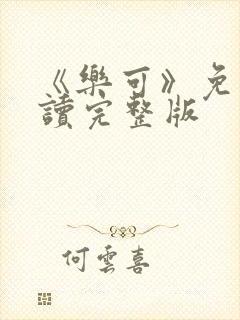 《樂可》免
讀完整版
何雲喜